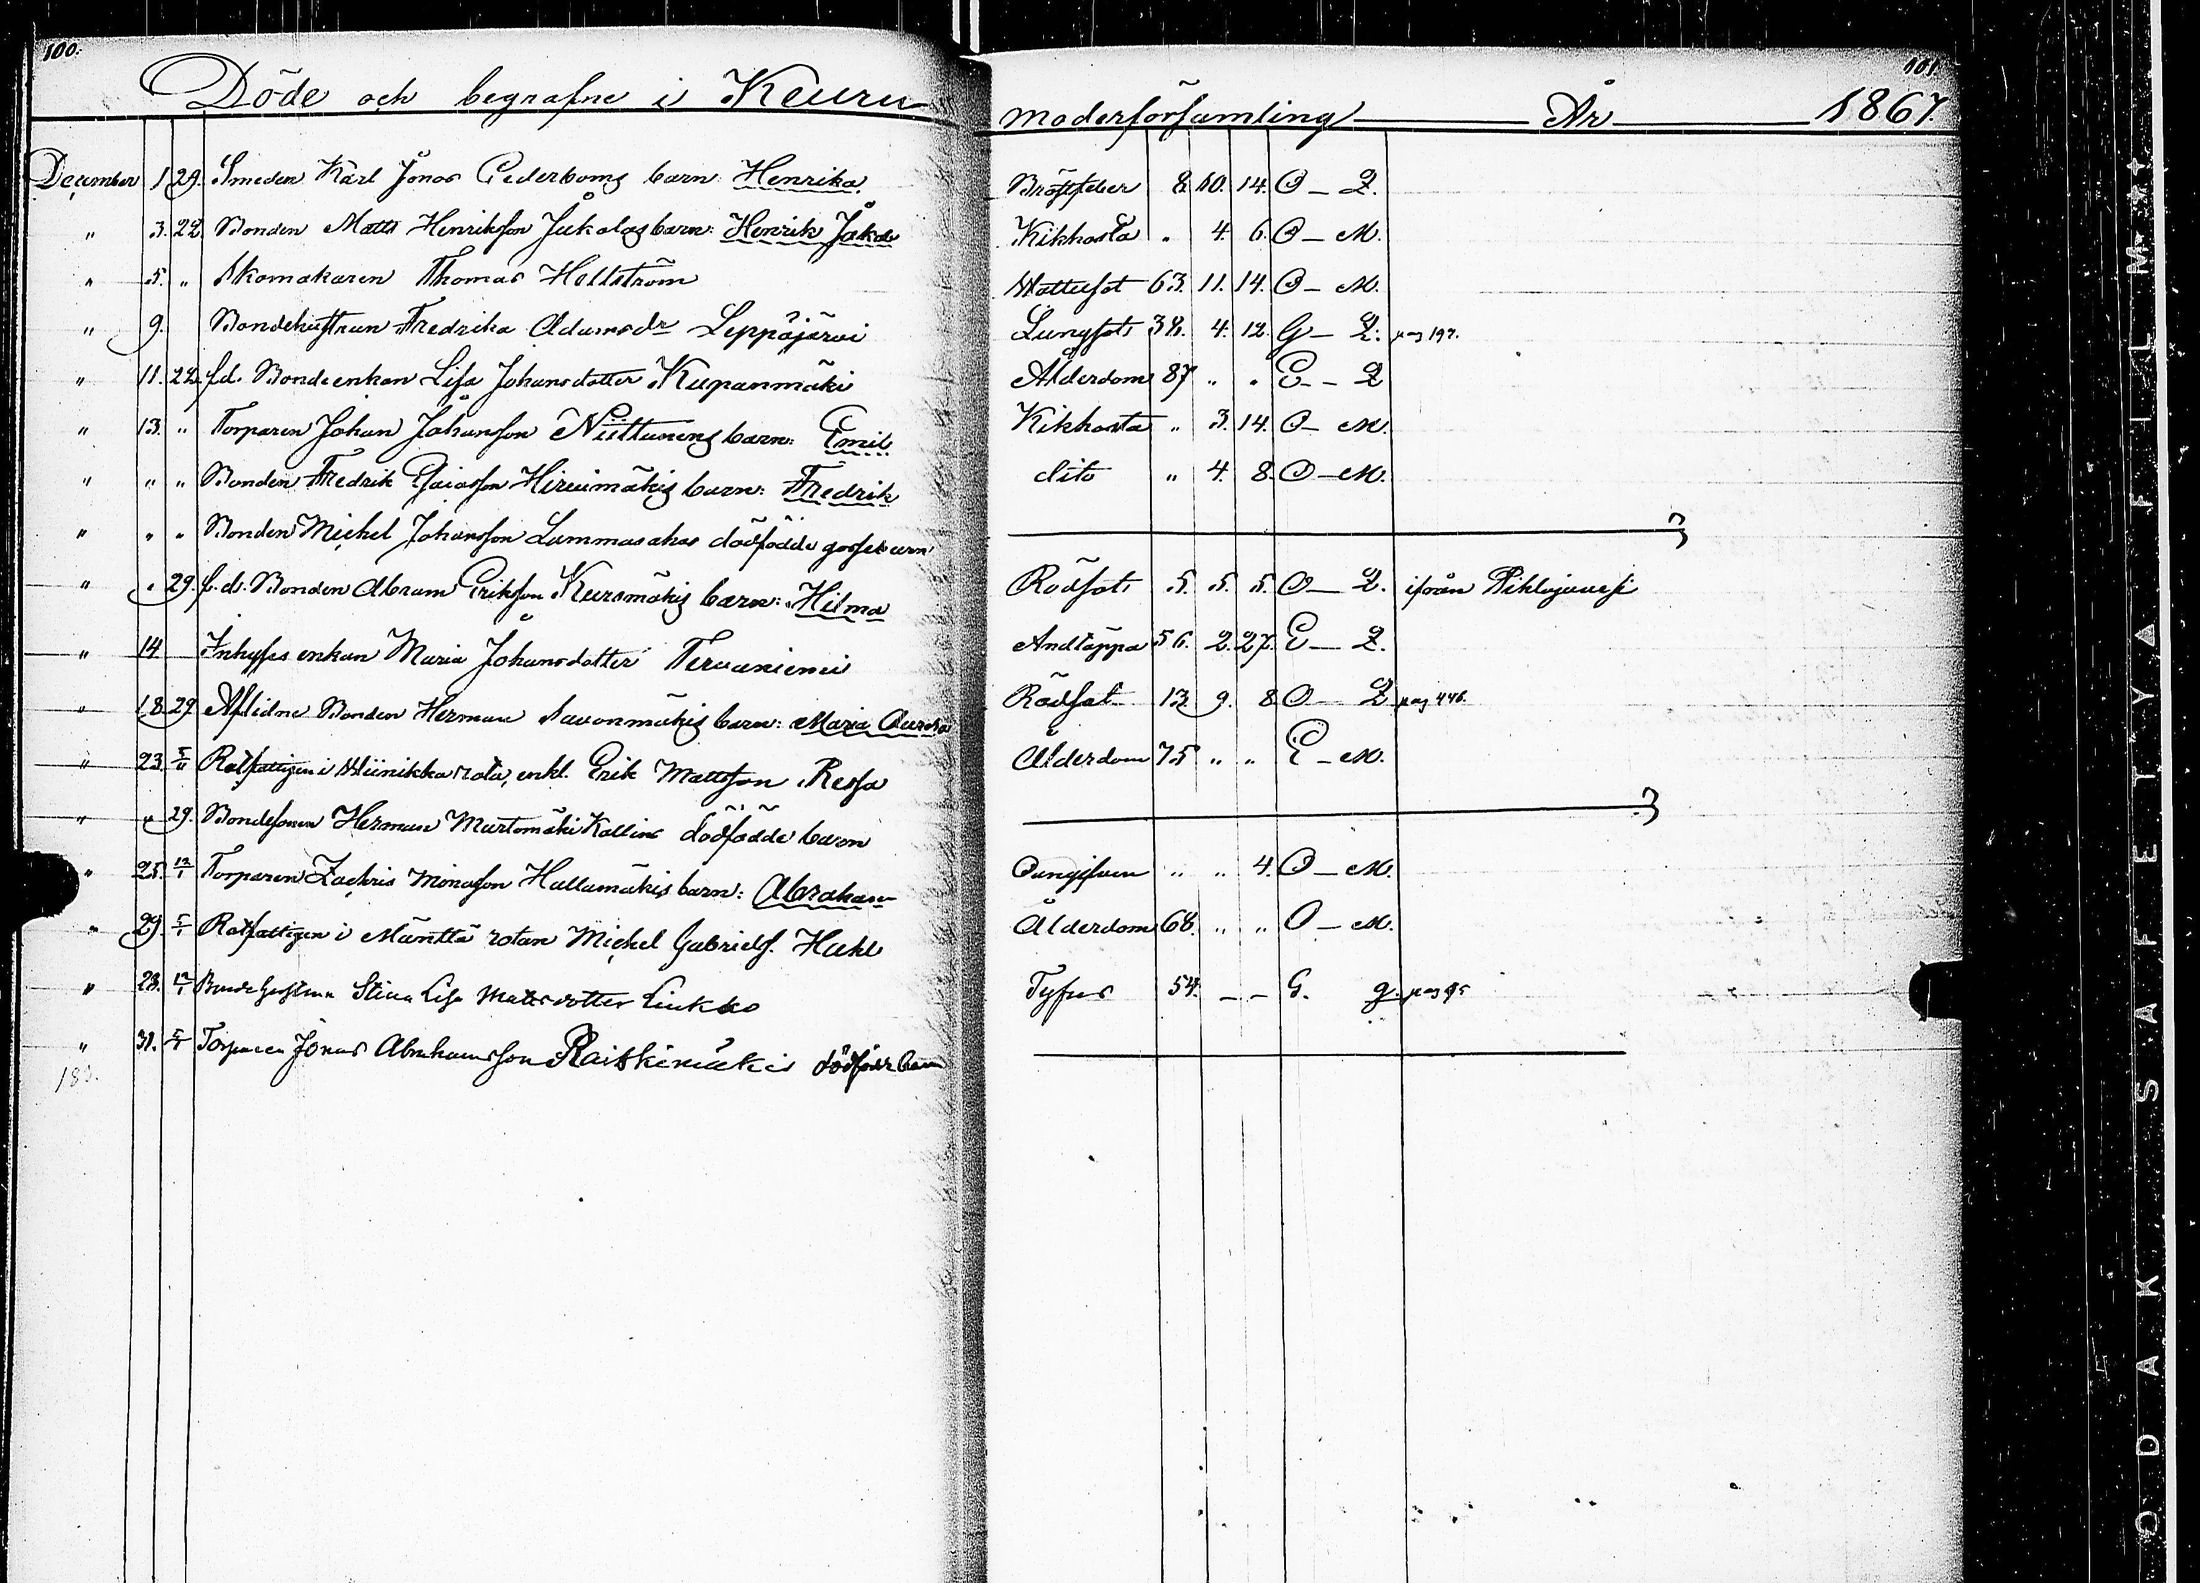 100.
101.
Döde och begrafne i Keuru moderförsamling År 1867.
December 1 29. Smeden Karl Jonas Cederboms barn: Henrika. Bröstfeber 8. 10. 14. O – Q.
" 3. 22. Bonden Matts Henriksson Jukolas barn: Henrik Jakob Kikhosta " 4. 6. O – M.
" 5. " Skomakaren Thomas Hellström Wattusot 63. 11. 14. O – M.
" 9. Bondehustrun Fredrika Adamsdr Leppäjärvi Lungsot 38. 4. 12. G – Q. pag 197.
" 11. 22. f.d. Bondeenkan Lisa Johansdotter Kupanmäki Ålderdom 87 " " E – Q
" 13. " Torparen Johan Johansson Niittunens barn: Emil Kikhosta " 3. 14. O – M.
" " " Bonden Fredrik Esaiasson Hirvimäkis barn: Fredrik dito " 4. 8. O – M.
" " " Bonden Michel Johansson Lammasahos dödfödde gossebarn
" " 29. f.d. Bonden Abram Eriksson Keuromäkis barn: Hilma Rödsot 5. 5. 5. O – Q. ifrån Pihlajavesi
" 14 Inhyses enkan Maria Johansdotter Tervaniemi Andtäppa 56. 2. 27. E – Q.
" 18. 29 Aflidne Bonden Herman Savonmäkis barn: Maria Aurora Rödsot 13. 9. 8 O – Q pag 446.
" 23. 5/11 Rotfattigen i Wiinikka rota, enkl. Erik Mattsson Ressa Ålderdom 75 " " E – M.
" " 29. Bondesonen Herman Murtomäki Kollins dödfödde barn
" 25. 12/1 Torparen Zachris Monasson Hallamäkis barn: Abraham " " 4. O – M.
" 29. 5/1 Rotfattigen i Mänttä rotan Michel Gabrielss. Huhl Ålderdom 68. " " O – M.
" 28. 12/1 Bondehustrun Stina Lisa Mattsdotter Liukko Tyfus 54. – – G. q. pag 95
" 31. 5/1 Torparen Jonas Abrahamsson Raiskinmäkis dödfödde barn
180.
KODAK SAFETY FILM